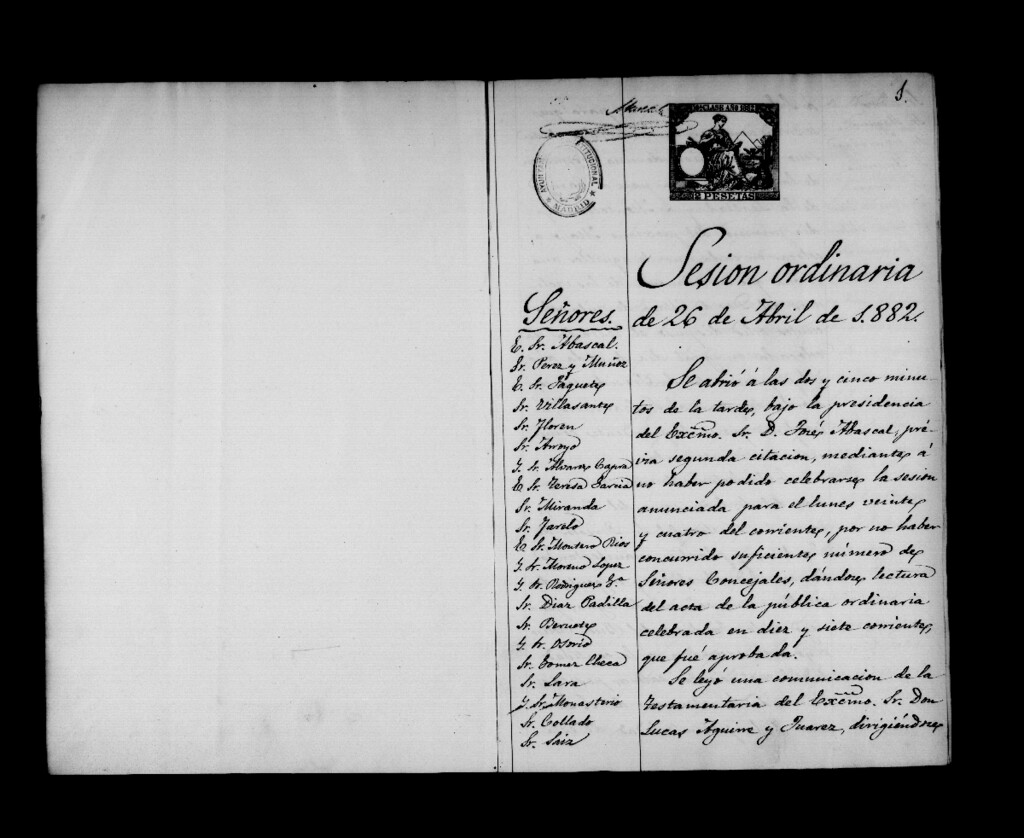 1.
CLASE AÑO 1882
2 PESETAS
CONSTITUCIONAL
* MADRID *
Sesion ordinaria
de 26 de Abril de 1.882.
Señores.
E. Sr. Abascal.
Sr. Perez y Muñoz
E. Sr. Jaquete
Sr. Villasante
Sr. Floren
Sr. Arroyo
Y. Sr. Alvarez Capra
E. Sr. Teresa Garcia
Sr. Miranda
Sr. Varela
E. Sr. Montero Rios
Y. Sr. Moreno Lopez
Y. Sr. Rodriguez Gª
Sr. Diaz Padilla
Sr. Beruete
Y. Sr. Osorio
Sr. Gomez Checa
Sr. Lara
Y. Sr. Monasterio
Sr. Collado
Sr. Saiz
Se abrió á las dos y cinco minu-
tos de la tarde, bajo la presidencia
del Excmo. Sr. D. José Abascal, pré-
via segunda citacion, mediante á
no haber podido celebrarse la sesion
anunciada para el lunes veinte
y cuatro del corriente, por no haber
concurrido suficiente número de
Señores Concejales, dándose lectura
del acta de la pública ordinaria
celebrada en diez y siete corriente,
que fué aprobada.
Se leyó una comunicacion de la
testamentaria del Excmo. Sr. Don
Lucas Aguirre y Juarez, dirigiéndose